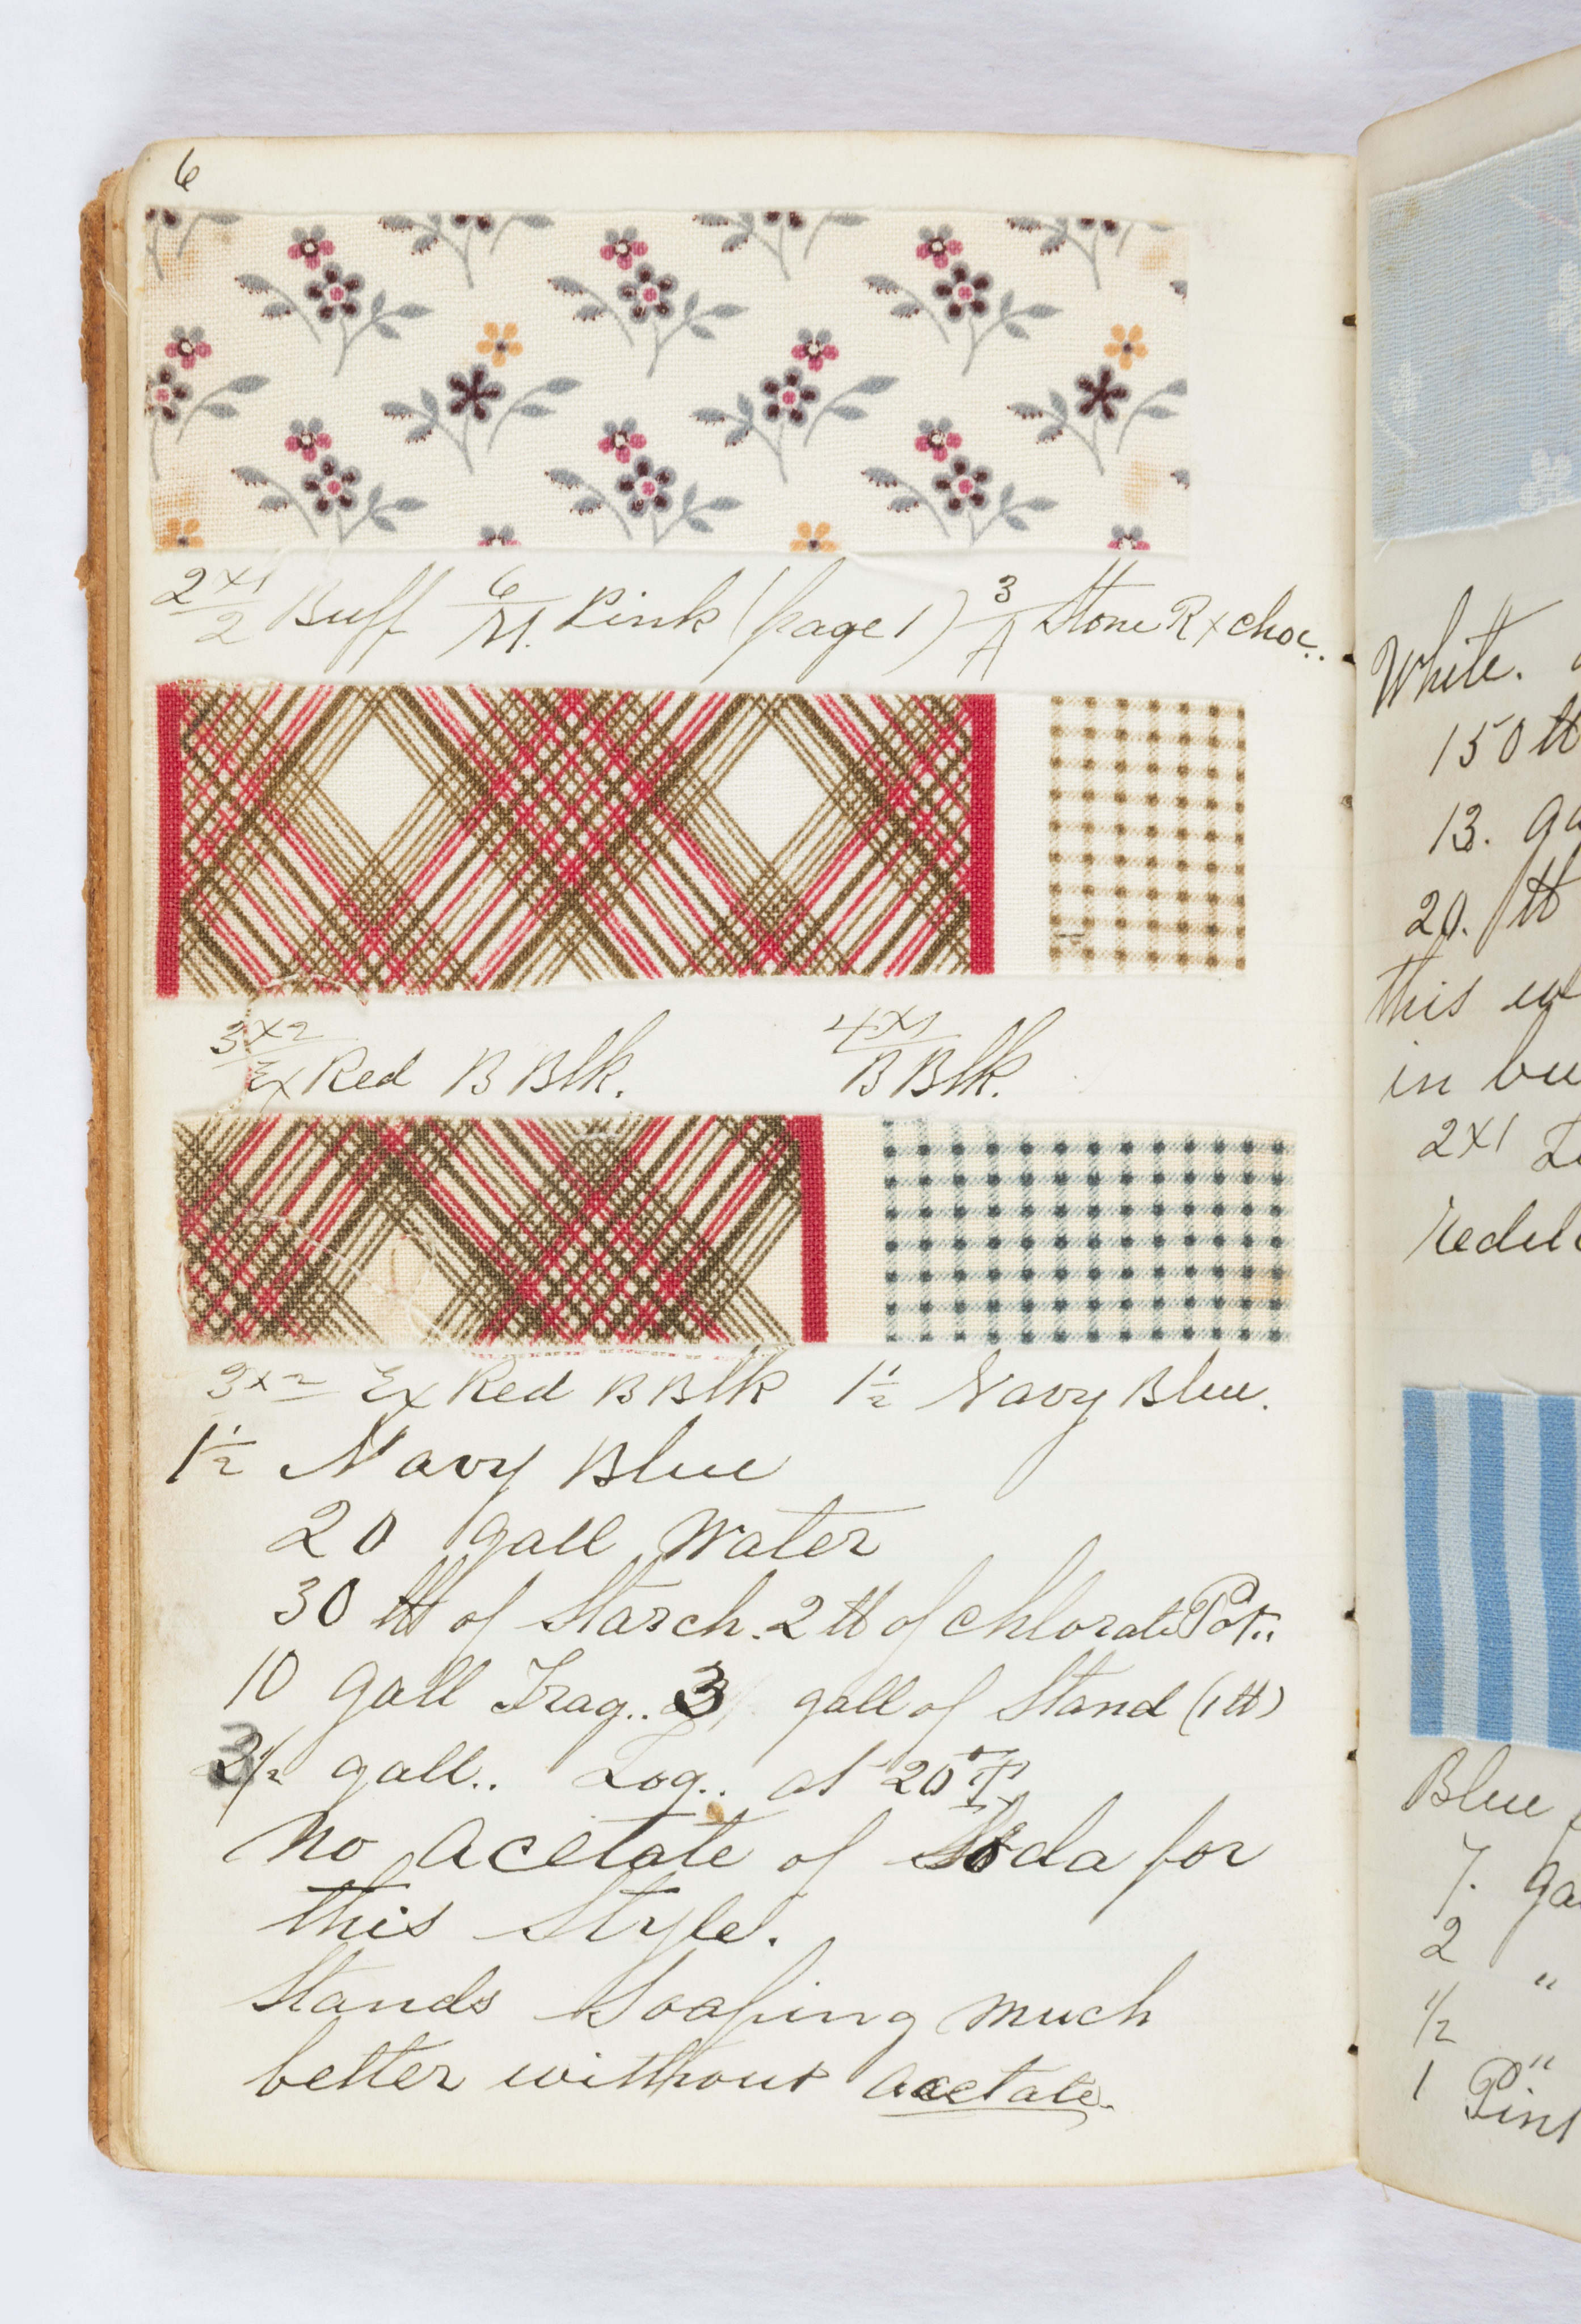 6
2 x1/2 Buff 6/M. Pink (page 1) 3/A Stone R x choc..
3 x2/Ex Red B Blk. 4x1/B Blk.
3x2 Ex Red B Blk 1 1/2 Navy Blue.
1 1/2 Navy Blue
20 gall Water
30 lb of Starch. 2 lb of chlorate Pot..
10 gall Trag.. 3 gall of Stand (1 lb)
3 1/2 gall.. Log.. at 20° T
No acetate of Soda for
this Style.
Stands Soaping much
better without acetate.
White.
150 lb
13. ga
20. lb
this
in bu
2x1
Blue
7. ga
2 "
1/2 "
1 Pint